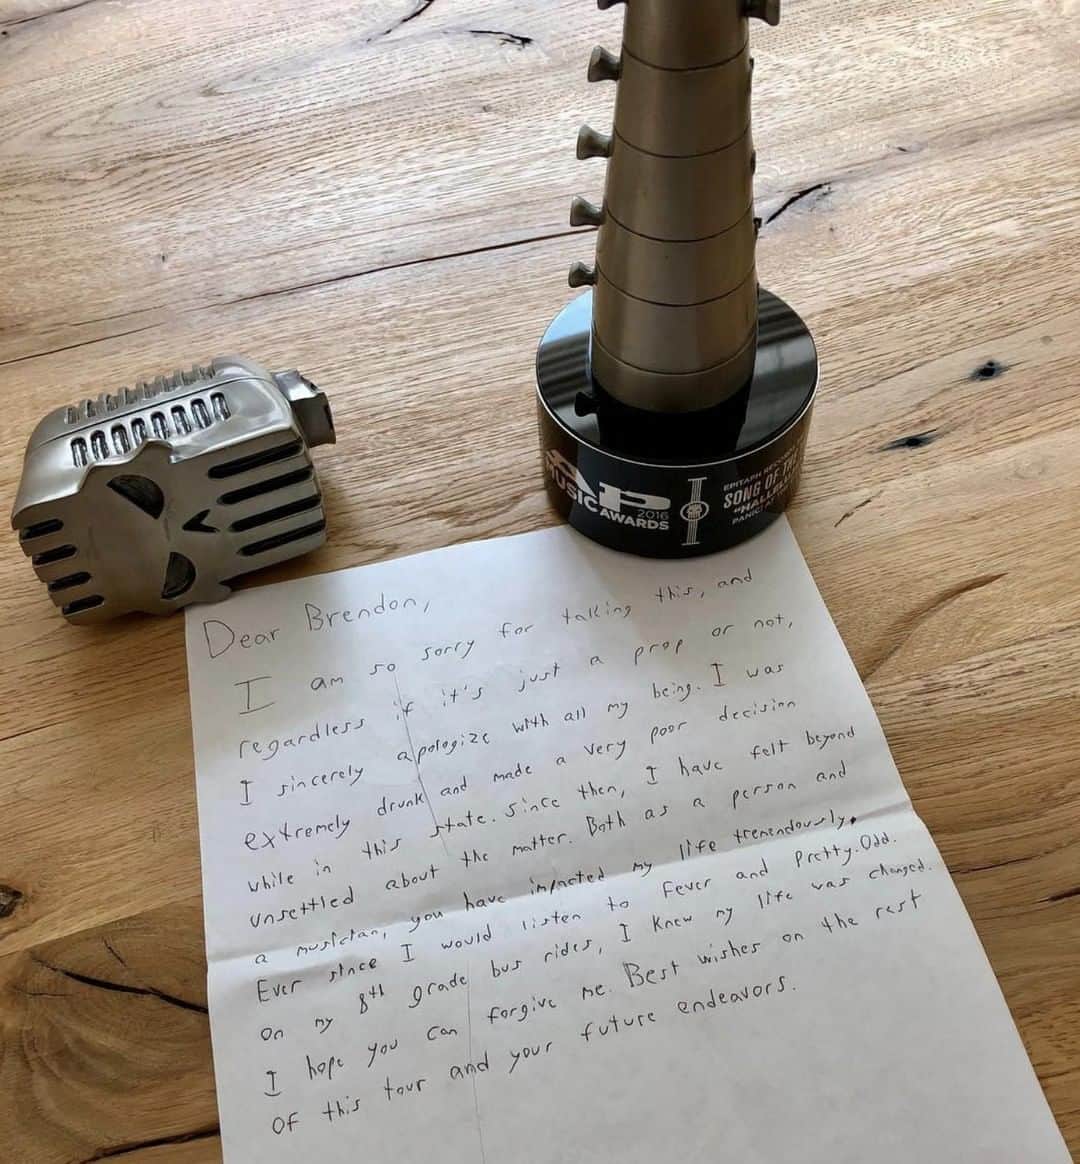 AP
MUSIC
2016
AWARDS
EPITAPH
SONG OF THE
PANIC!
Dear Brendon,
I am so sorry for taking this, and
regardless if it's just a prop or not,
I sincerely apologize with all my being. I was
extremely drunk and made a very poor decision
while in this state. Since then, I have felt beyond
unsettled about the matter. Both as a person and
a musician, you have impacted my life tremendously.
Ever since I would listen to Fever and Pretty. Odd.
on my 8th grade bus rides, I knew my life was changed.
I hope you can forgive me. Best wishes on the rest
of this tour and your future endeavors.